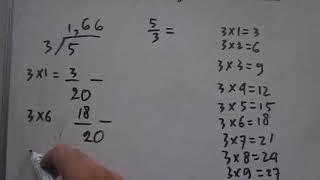 1,66
3 5
3x1= 3 —
20
3x6 18 —
20
5/3 =
3x1=3
3x2=6
3x3=9
3x4=12
3x5=15
3x6=18
3x7=21
3x8=24
3x9=27